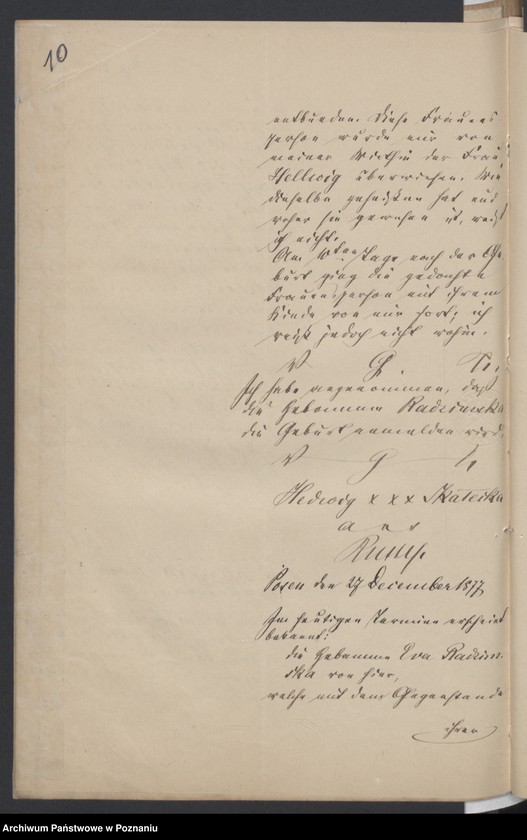 10
entbunden. Diese Frauens
person wurde mir von
meiner Wirthin der Frau
Hellwig überwiesen. Wie
dieselbe geheißen hat und
woher sie gewesen ist, weiß
ich nicht.
Am 10ten Tage nach der Ge
burt ging die gedachte
Frauensperson mit ihrem
Kinde von mir fort; ich
weiß jedoch nicht wohin.
V. G. U.
Ich habe angenommen, daß
die Hebamme Radziewska
die Geburt anmelden wird.
V G U
Hedwig x x x Skatecka
a u s
Posen den 27 December 1877
Im heutigen Termine erscheint
bekannt:
die Hebamme Eva Radziew
ska von hier,
welche mit dem Gegenstande
ihrer
Archiwum Państwowe w Poznaniu